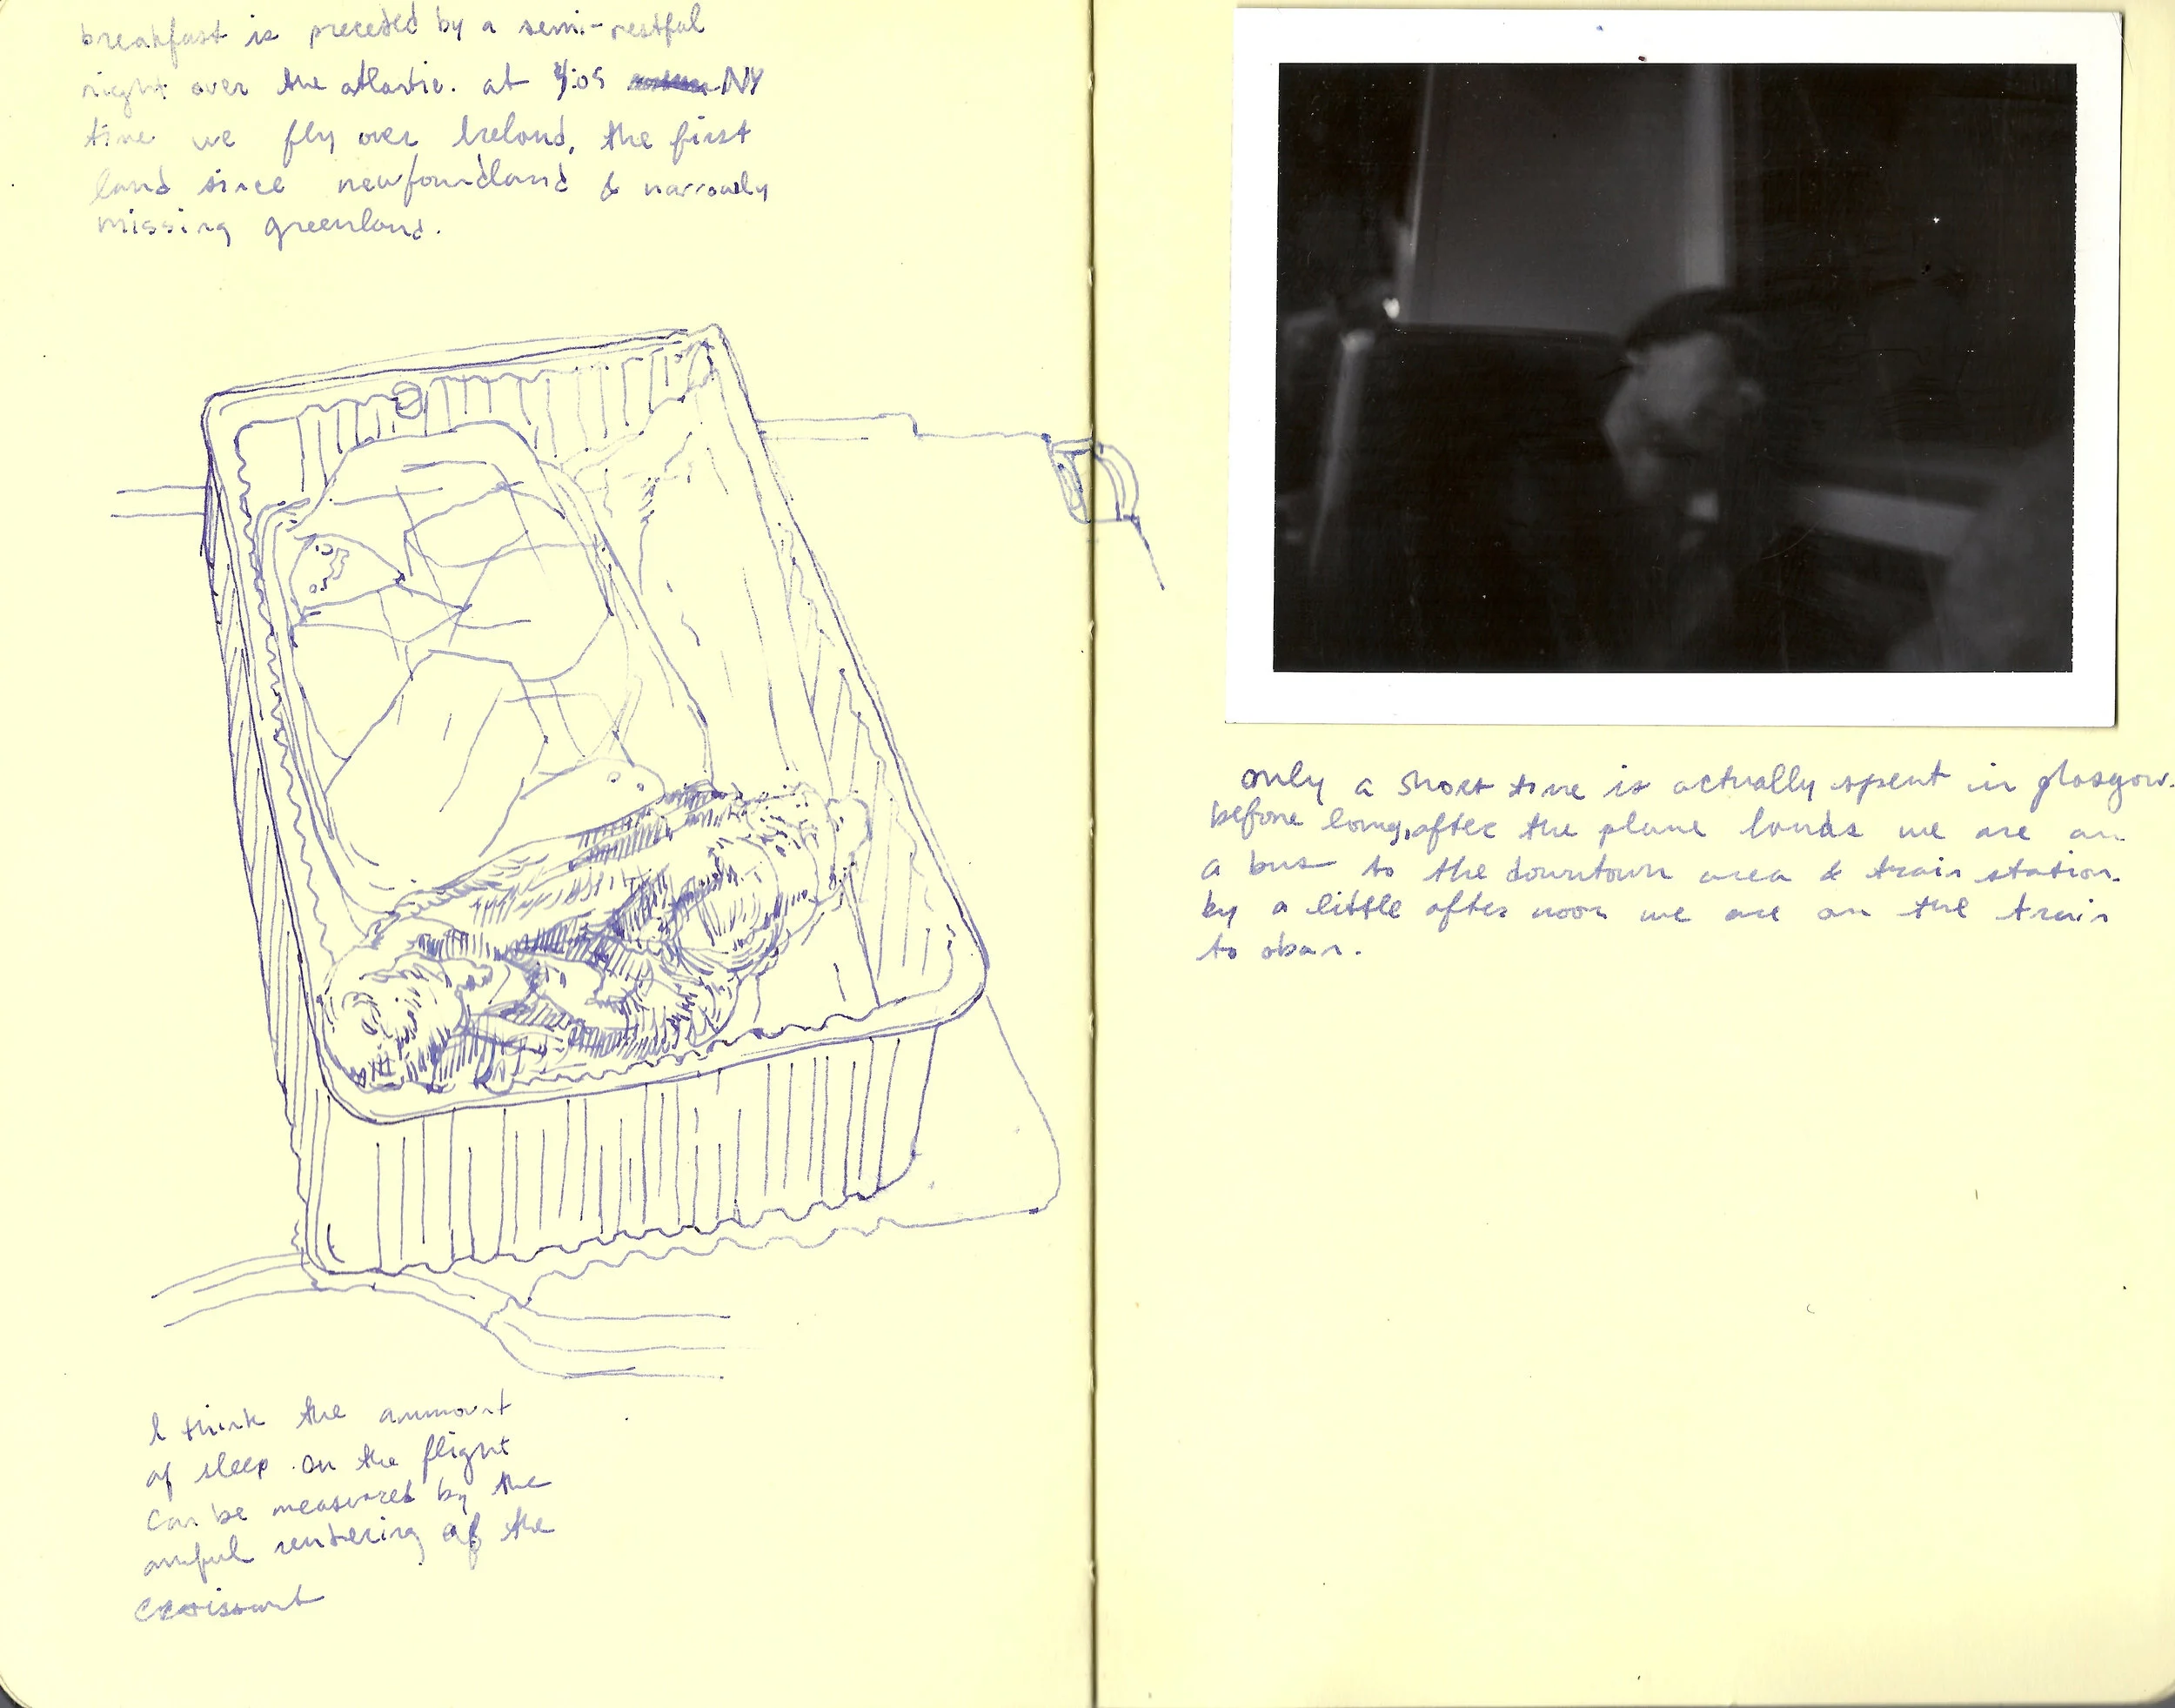 breakfast is preceded by a semi-restful
night over the atlantic. at 4:05 NY
time we fly over Ireland, the first
land since newfoundland & narrowly
missing greenland.
I think the ammount
of sleep on the flight
can be measured by the
awful rendering of the
croissant
only a short time is actually spent in glasgow.
before long, after the plane lands we are on
a bus to the downtown area & train station.
by a little after noon we are on the train
to oban.